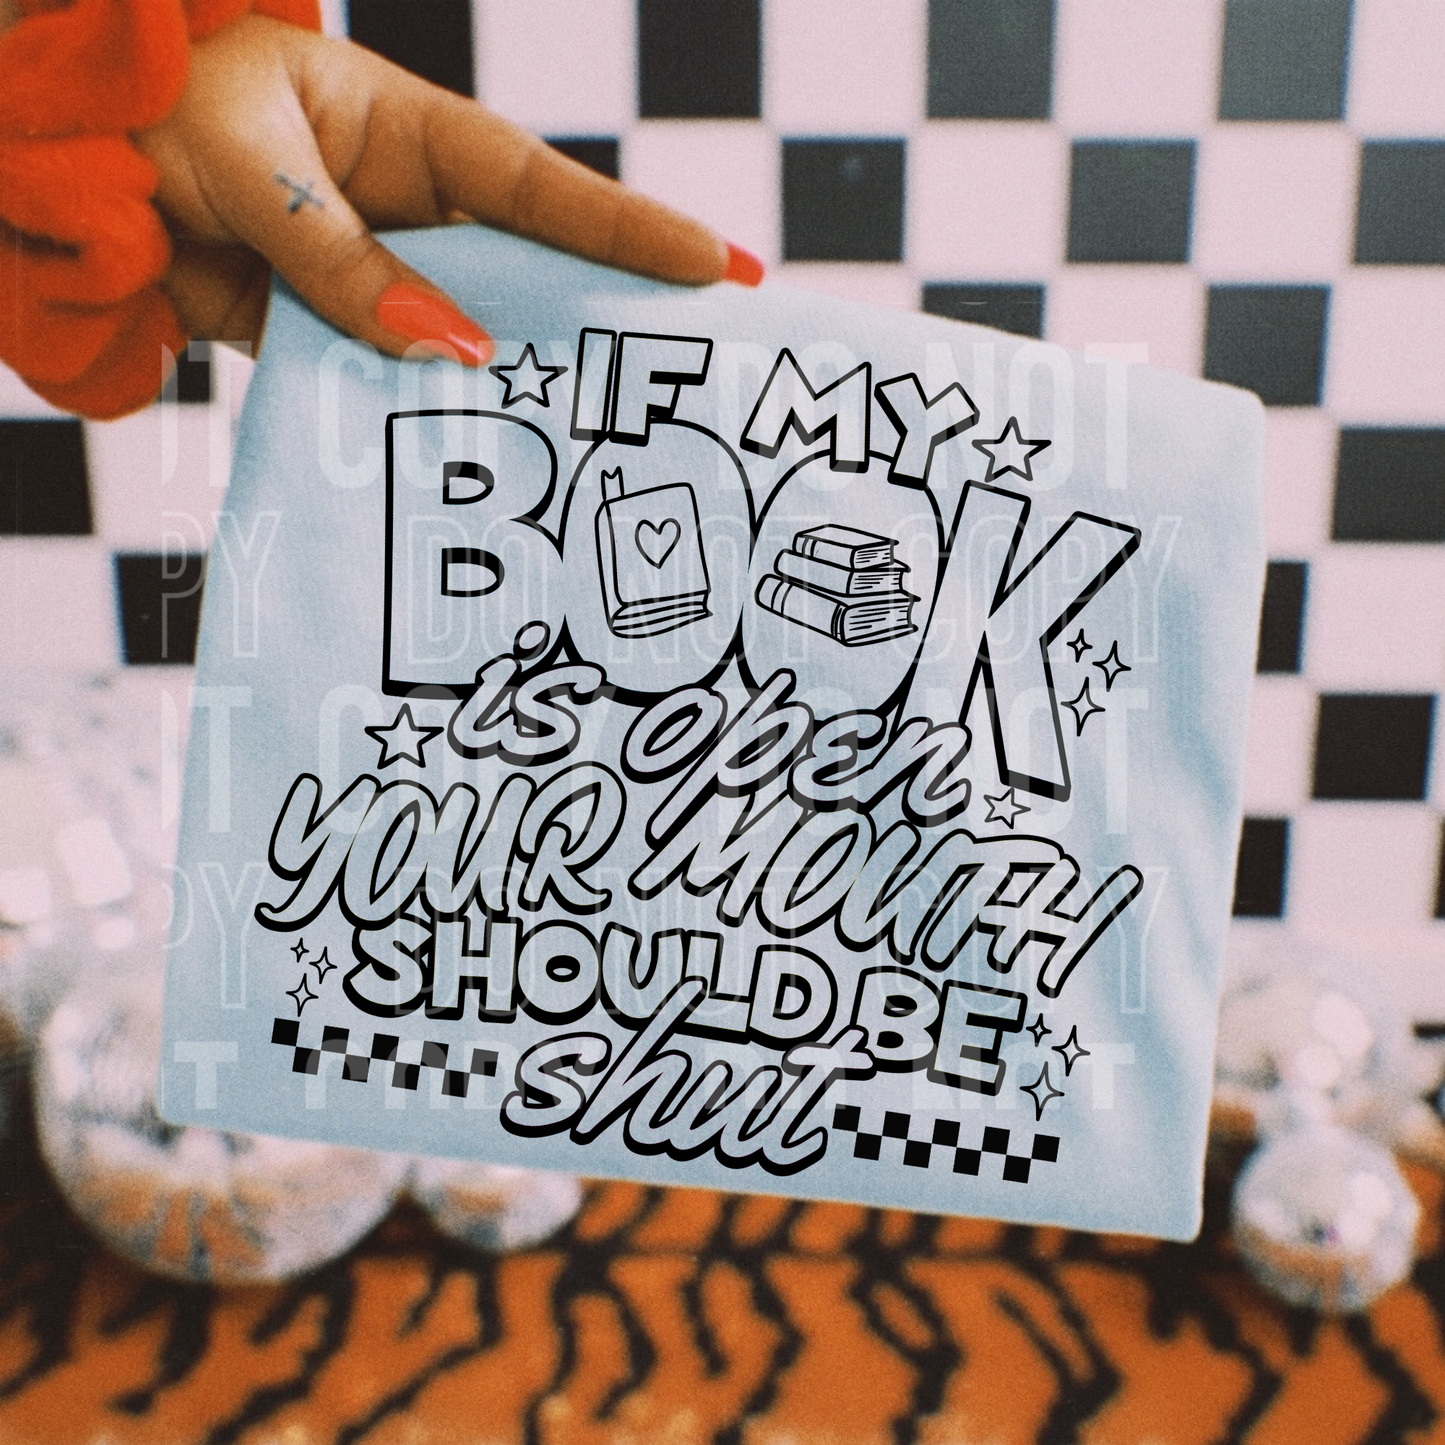 IF MY
BOOK
is open
YOUR MOUTH
SHOULD BE
shut
OT COPY DO NOT
PY DO NOT COPY
OT COPY DO NOT
PY DO NOT COPY